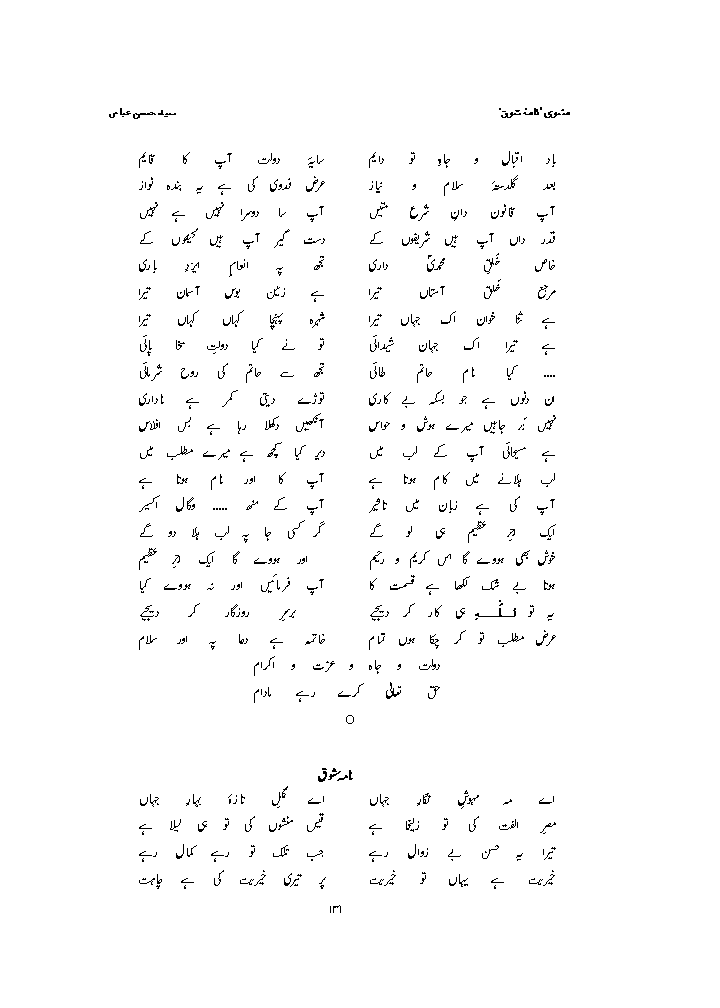 مثنوی ’نامۂ شوق‘ سید حسن عباس
باد اقبال و جاہِ تو دایم سایۂ دولت آپ کا قایم
بعد گلدستۂ سلام و نیاز عرض فدوی کی ہے یہ بندہ نواز
آپ قانون دانِ شرع متیں آپ سا دوسرا نہیں ہے نہیں
قدر داں آپ ہیں شریفوں کے دست گیر آپ ہیں کے
خاص خُلقِ محمدیؐ داری تجھ پہ انعامِ ایزدِ باری
مرجعِ خَلق آستاں تیرا ہے زمین بوس آسمان تیرا
ہے ثنا خوان اک جہاں تیرا شہرہ پہنچا کہاں کہاں تیرا
ہے ترا اک جہان شیدائی تو نے کیا دولتِ سخا پائی
.... کیا نام حاتم طائی تجھ سے حاتم کی روح شرمائی
ن دنوں ہے جو بسکہ بے کاری توڑے دیتی کمر ہے ناداری
نہیں بَر جاہیں میرے ہوش و حواس آنکھیں دکھلا رہا ہے بس افلاس
ہے مسیحائی آپ کے لب میں دیر کیا کچھ ہے میرے مطلب میں
لب ہلانے میں کام ہوتا ہے آپ کا اور نام ہوتا ہے
آپ کی ہے زبان میں تاثیر آپ کے منھ ..... وگال اکسیر
ایک اجرِ عظیم ہی لو گے گر کسی جا پہ لب ہلا دو گے
خوش بھی ہووے گا اس کریم و رحیم اور ہووے گا ایک اجرِ عظیم
ہوتا بے شک لکھا ہے قسمت کا آپ فرمائیں اور نہ ہووے کیا
یہ تو للّٰہ ہی کار کر دیجے برسرِ روزگار کر دیجے
عرض مطلب تو کر چکا ہوں تمام خاتمہ ہے دعا پہ اور سلام
دولت و جاہ و عزت و اکرام
حق تعالیٰ کرے رہے مادام
نامہ شوق
اے مہ مہوشِ نگارِ جہاں اے گُلِ تازۂ بہارِ جہاں
مصر الفت کی تو زلیخا ہے قیس منشوں کی تو ہی لیلا ہے
تیرا یہ حسن بے زوال رہے جب تلک تو رہے کمال رہے
خیریت ہے یہاں تو خیریت پر تیری خیریت کی ہے چاہت
۱۳۱